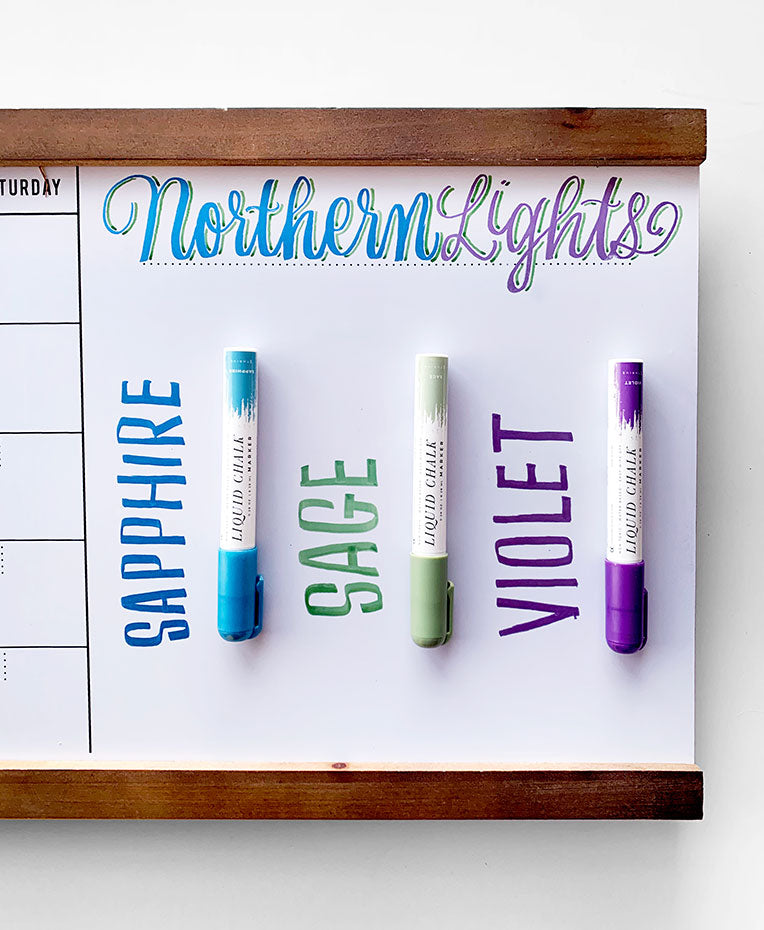 TURDAY
Northern Lights
SAPPHIRE
SAGE
VIOLET
SAPPHIRE
LIQUID CHALK
MARKER
SAGE
LIQUID CHALK
MARKER
VIOLET
LIQUID CHALK
MARKER